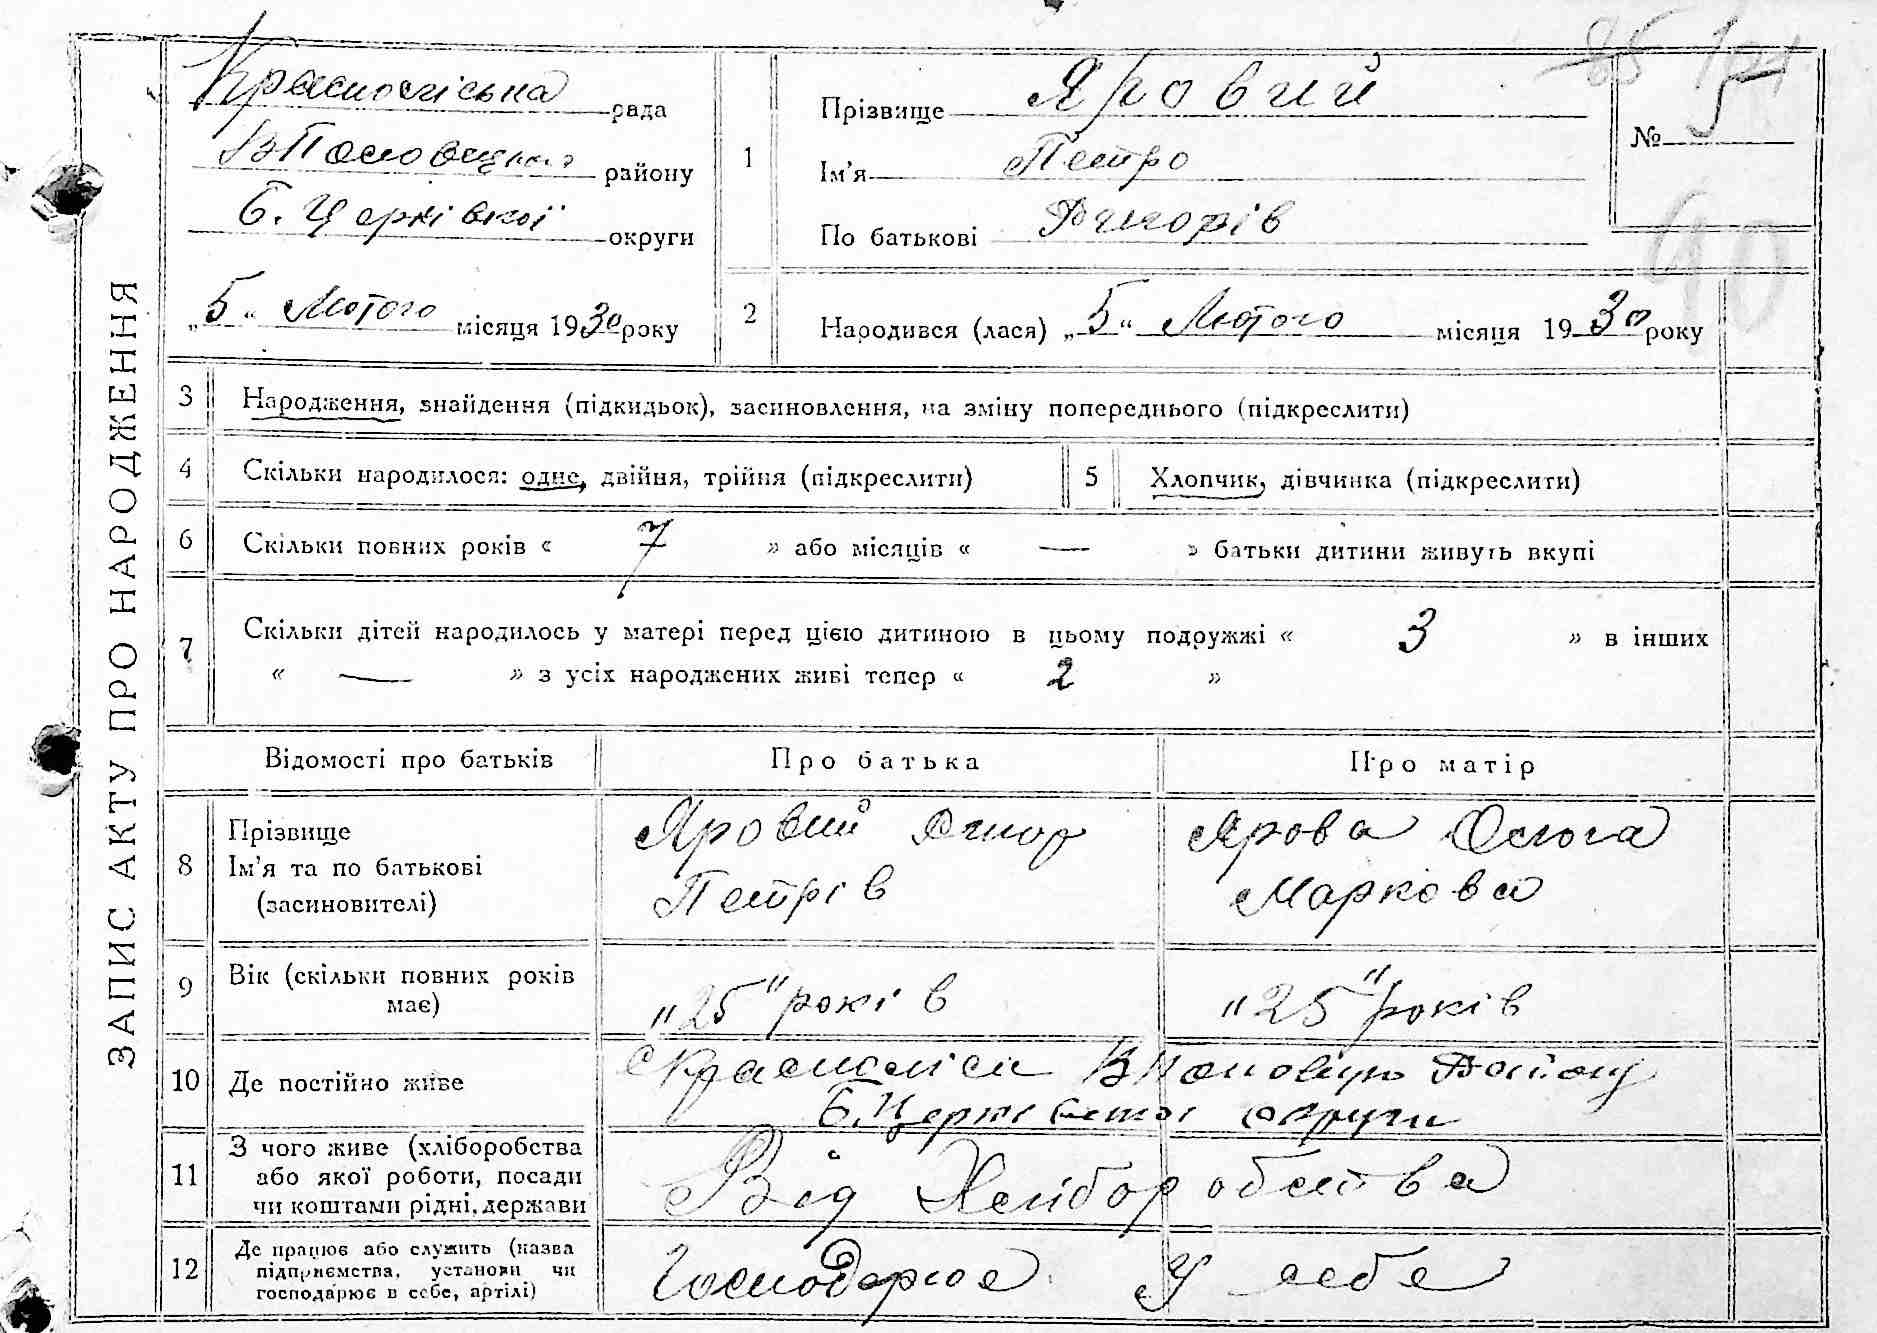 ЗАПИС АКТУ ПРО НАРОДЖЕННЯ
Красноліська рада
В Половецького району
Б. Церківської округи
„5“ Лютого місяця 1930 року
1
Прізвище Яровий
Ім'я Петро
По батькові
№ 5
85
90
2
Народився (лася) „5“ Лютого місяця 1930 року
3 Народження, знайдення (підкидьок), засиновлення, на зміну попереднього (підкреслити)
4 Скільки народилося: одне, двійня, трійня (підкреслити) 5 Хлопчик, дівчинка (підкреслити)
6 Скільки повних років « 7 » або місяців « — » батьки дитини живуть вкупі
7 Скільки дітей народилось у матері перед цією дитиною в цьому подружжі « 3 » в інших
« — » з усіх народжених живі тепер « 2 »
Відомості про батьків Про батька Про матір
8 Прізвище
Ім'я та по батькові
(засиновителі)
Яровий
Петрів
Ярова Ольга
Маркова
9 Вік (скільки повних років
має)
„25" років „25" років
10 Де постійно живе
Б. Церківської округи
11 З чого живе (хліборобства
або якої роботи, посади
чи коштами рідні, держави
Від Хліборобства
12 Де працює або служить (назва
підприємства, установи чи
господарює в себе, артілі)
Господарює У себе